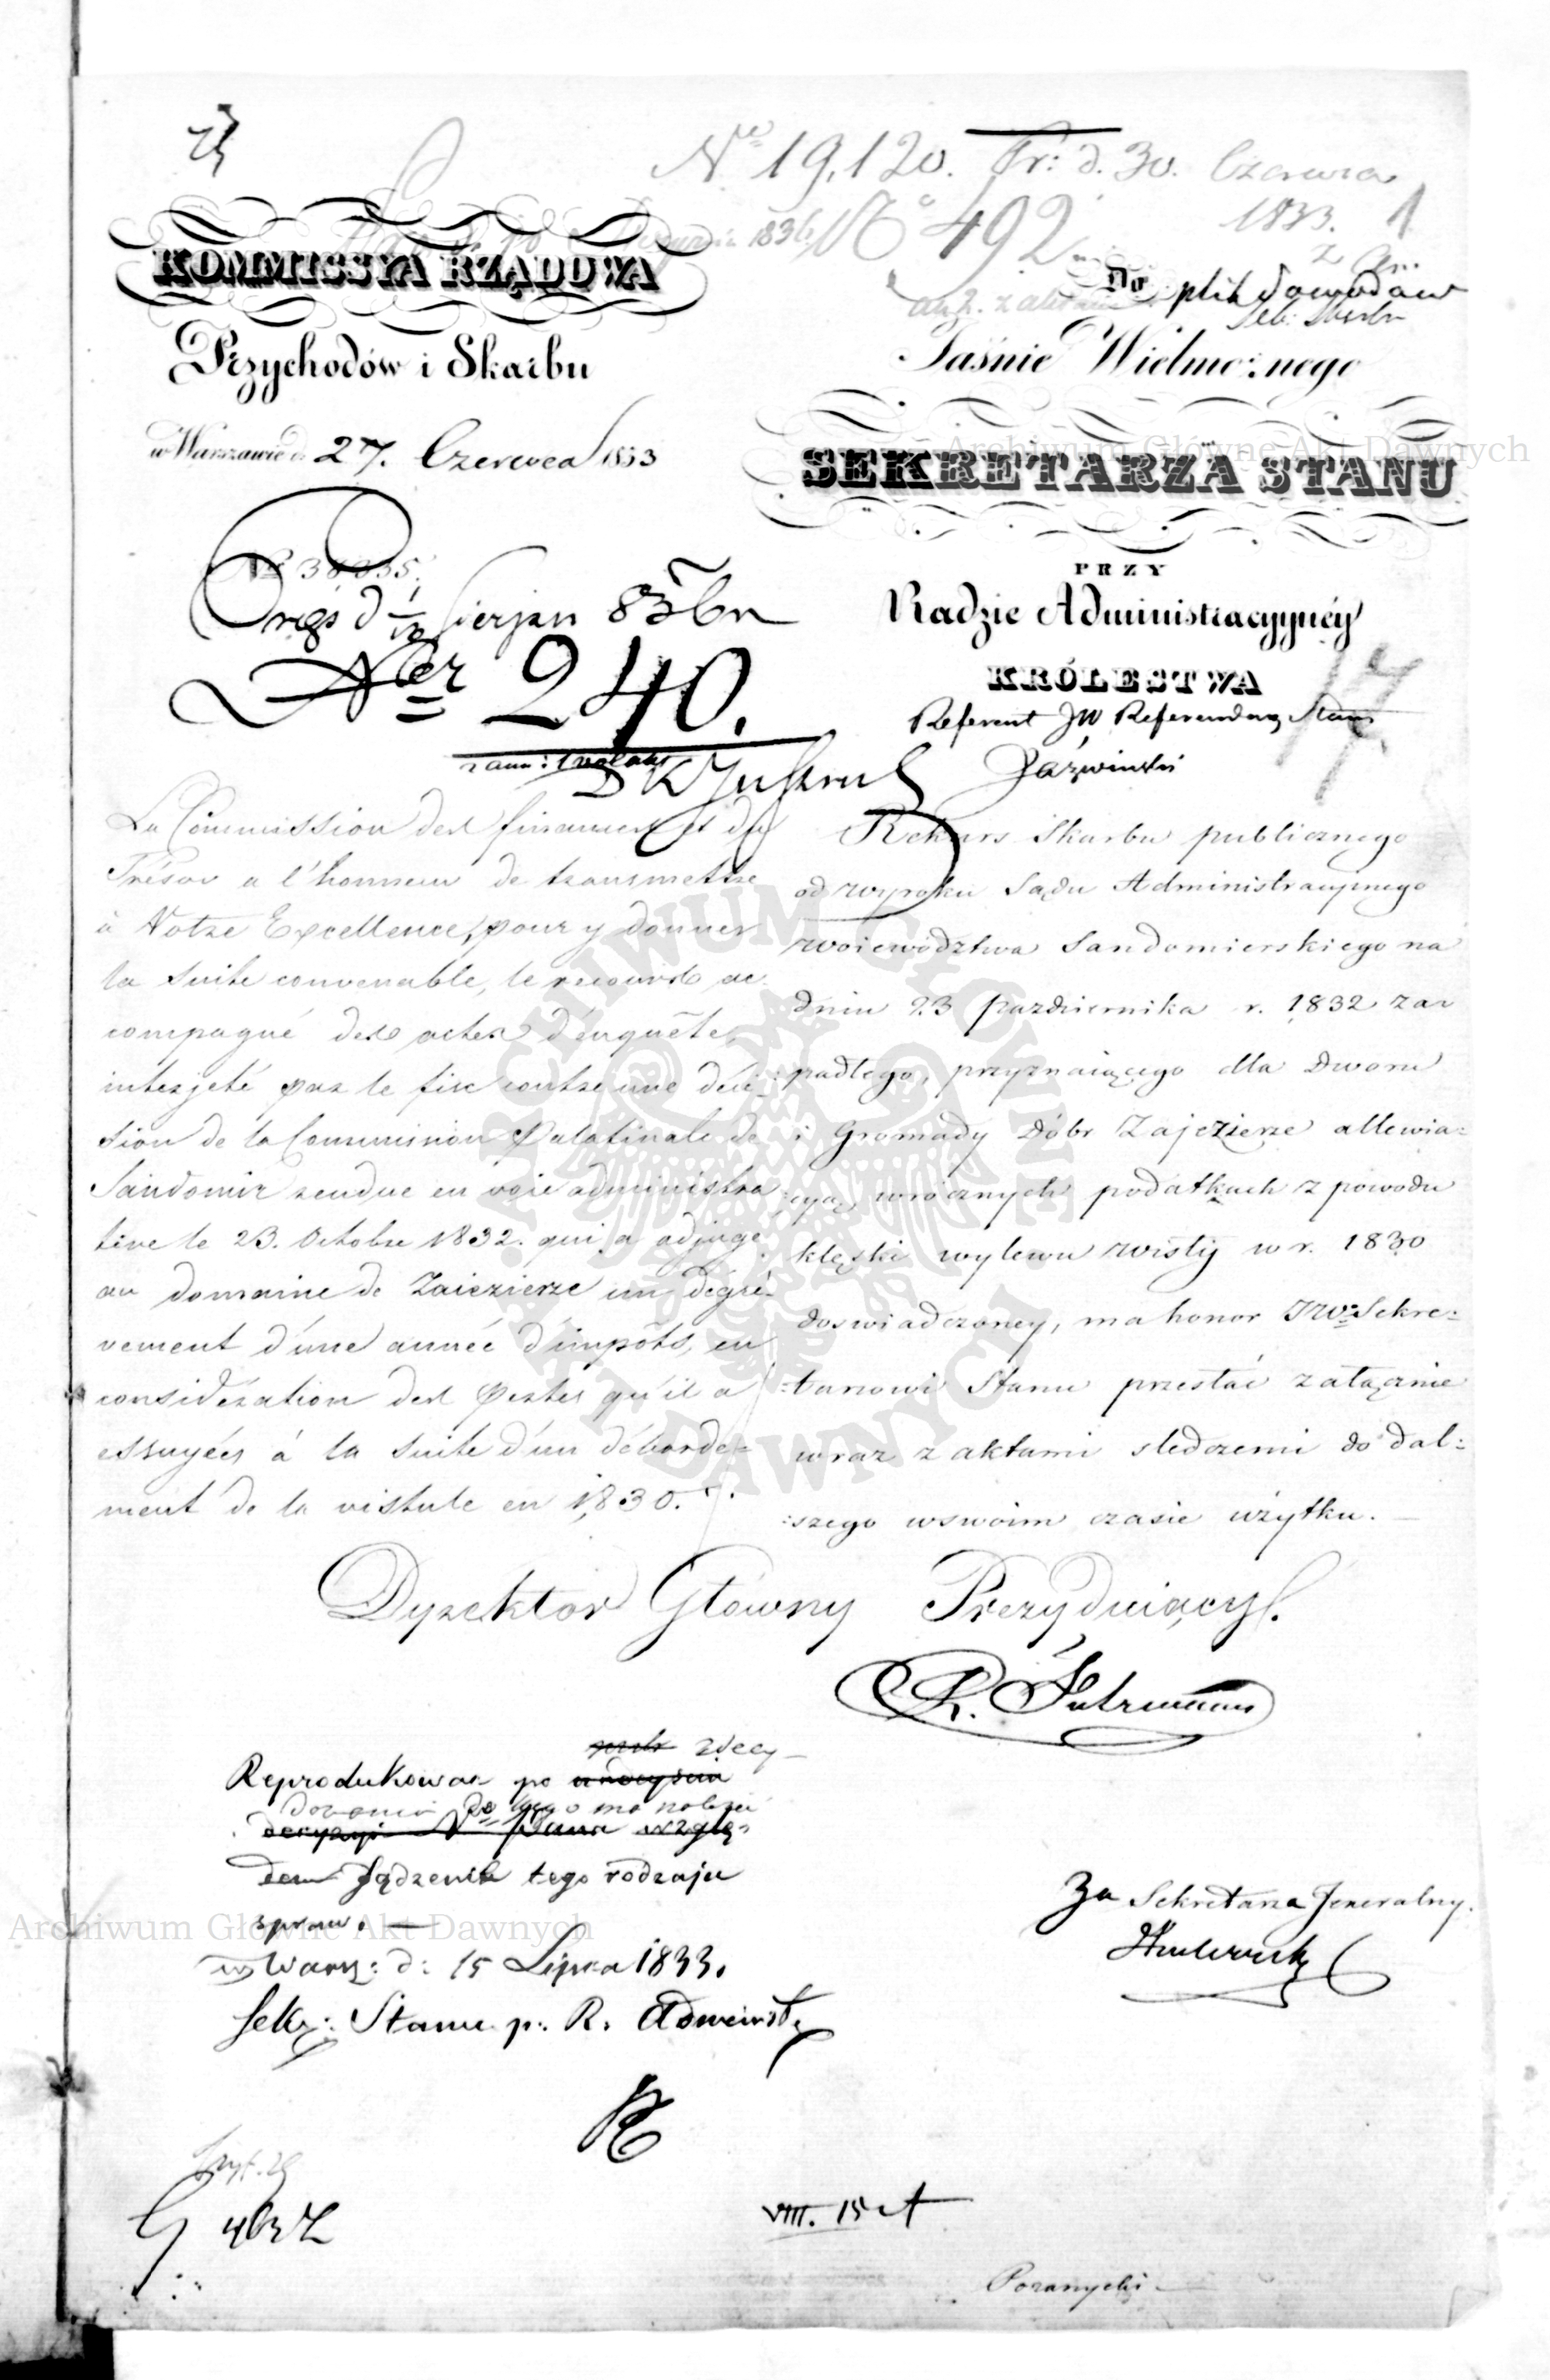 No 19,120. Pr: d. 30. Czerwca
1833.
No 492
KOMMISSYA RZĄDOWA
Przychodów i Skarbu
w Warszawie d. 27. Czerwca 1833
Do
plik dowodów
Jaśnie Wielmożnego
SEKRETARZA STANU
PRZY
Radzie Administracyynéy
KRÓLESTWA
Referent JW Referendarz Stanu
No 38835.
Ner 240.
La Commission des finances et du
Trésor a l'honneur de transmettre
à Votre Excellence, pour y donner
la suite convenable, le recours ac
compagné des actes d'enquête,
interjeté par le fisc contre une déci-
sion de la Commission Palatinale de
Sandomir rendue en voie administra
tive le 23. Octobre 1832. qui a adjugé
au domaine de Zaiezierze un dégrè-
vement d'une année d'impôts, en
considération des pertes qu'il a
essuyées à la suite d'un déborde-
ment de la vistule en 1830.
Rekurs Skarbu publicznego
od wyroku Sądu Administracyinego
woiewództwa Sandomierskiego na
dniu 23 Października r. 1832 za
:padłego, przyznaiącego dla Dworu
i Gromady Dóbr Zajezierze allewia=
:cyą w rocznych podatkach z powodu
klęski wylewu wisły w r. 1830
doswiadczoney, ma honor JWmu Sekre=
:tarzowi Stanu przesłać załącznie
wraz z aktami sledczemi do dal=
:szego w swoim czasie użytku.
Dyrektor Główny Prezyduiący
R. Fuhrmann
zdecy-
Reprodukować po
dowaniu do kogo ma należeć
sądzenie tego rodzaju
spraw. —
w Warsz: d: 15 Lipca 1833.
Sekr: Stanu p: R. Administ:
Za Sekretarza Jeneralny.
G 4632
VIII. 15
Archiwum Główne Akt Dawnych
Archiwum Główne Akt Dawnych
ARCHIWUM GŁÓWNE AKT DAWNYCH